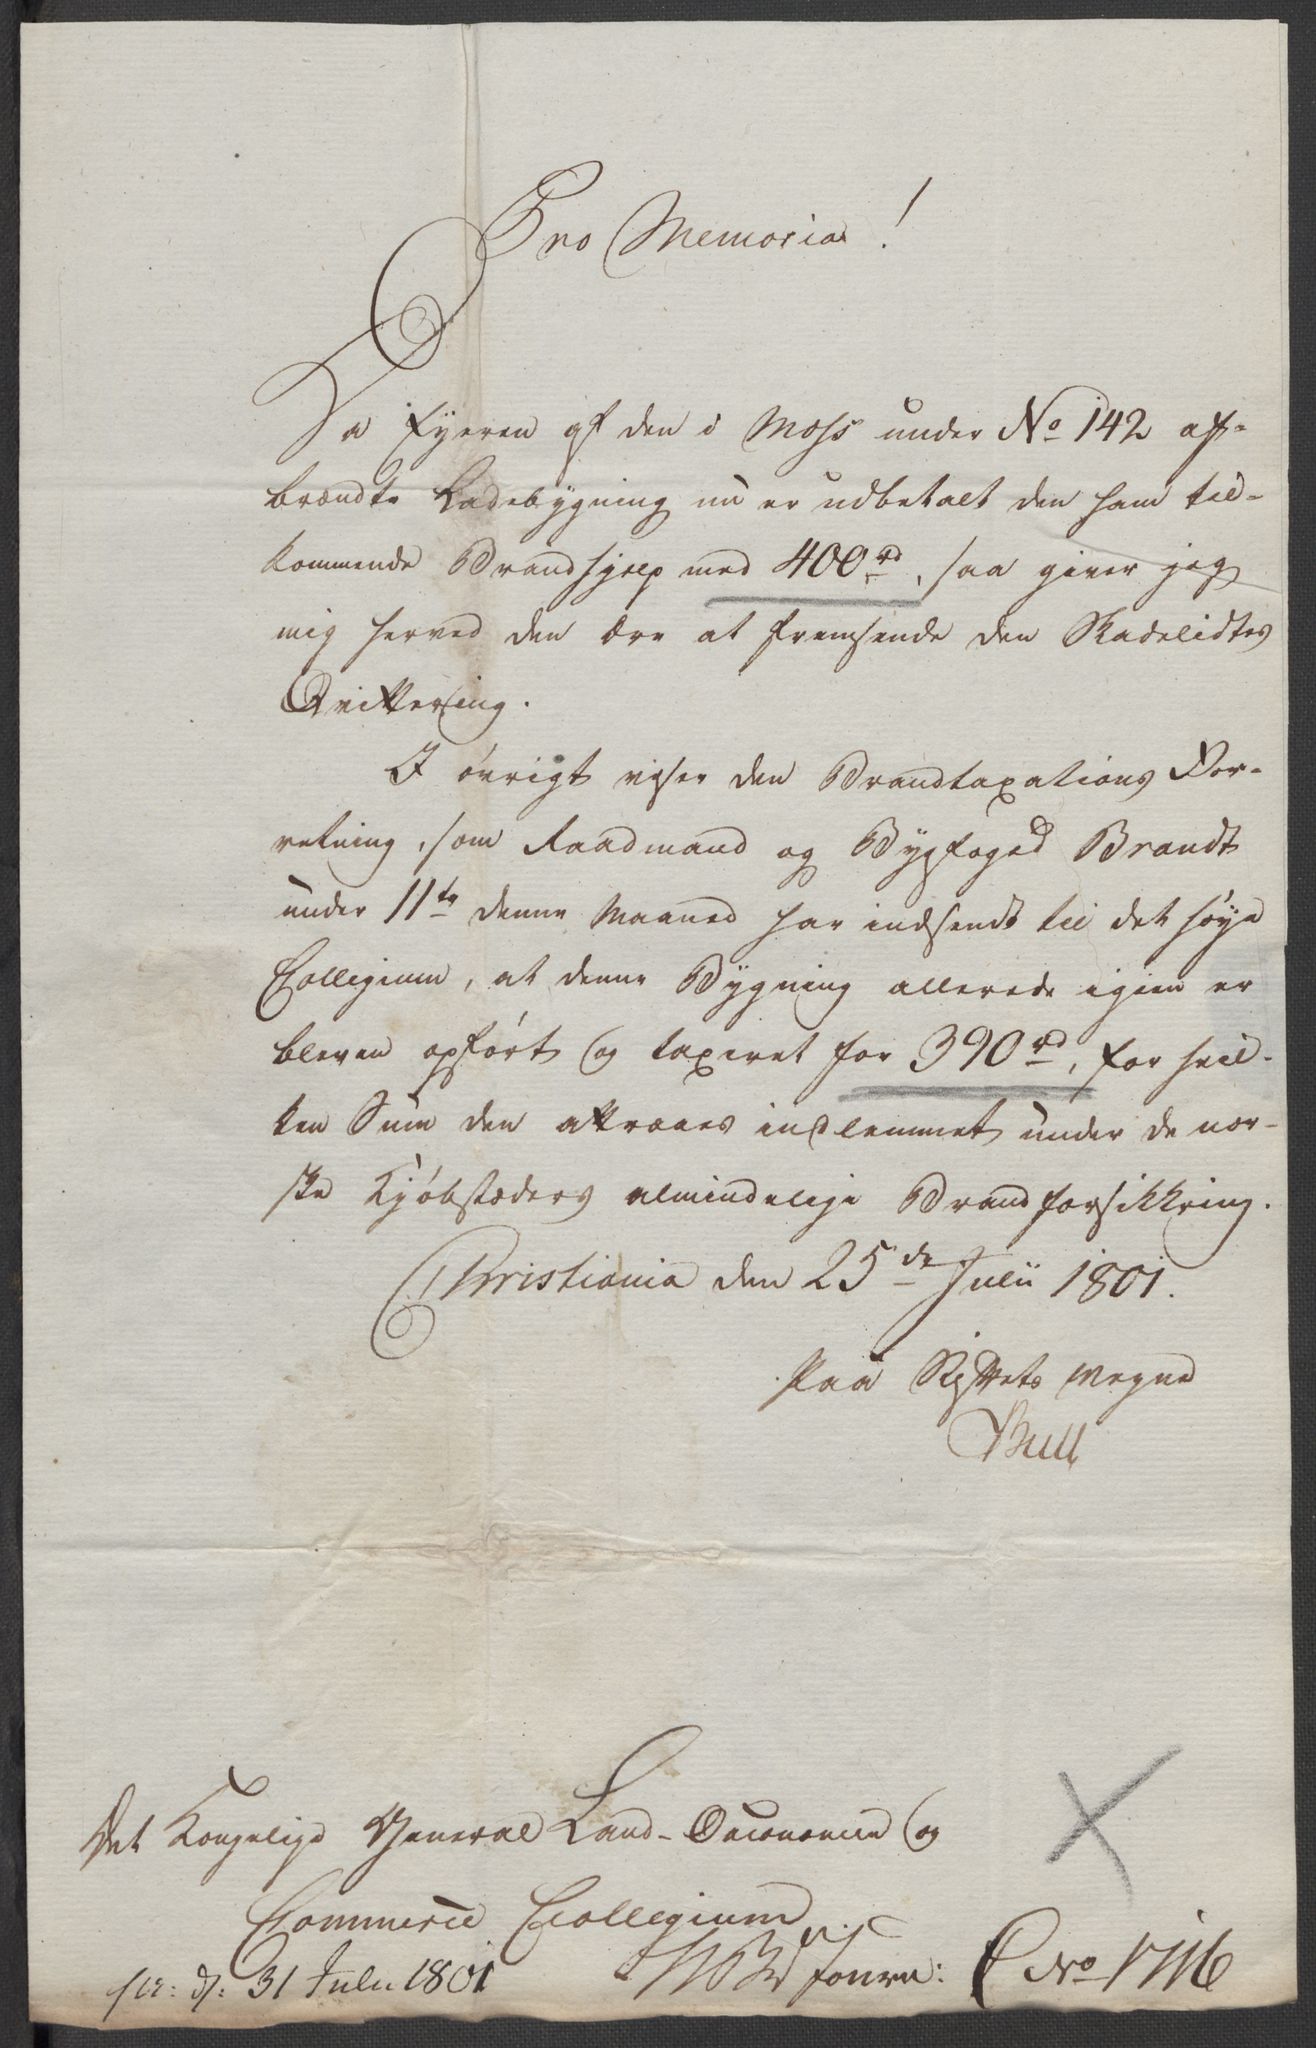 Pro Memoria!
Da Eyeren af den i Moss under No 142 af-
brændte Ladebygning nu er udbetalt den ham til-
kommende Brandhjælp med 400 rd, saa giver jeg
mig herved den Ære at fremsende den Skadelidtes
Qvittering.
I øvrigt viser den Brandtaxations For-
retning, som Raadmand og Byefoged Brandt
under 11te denne Maaned har indsendt til det høye
Collegium, at denne Bygning allerede igien er
bleven opført og taxeret for 390 rd, for hvil-
ken Sum den attraaes indlemmet under de nor-
ske Kjøbstæders almindelige Brandforsikkring.
Christiania den 25de Julii 1801.
Paa Stiftets Vegne
Bull
Det Kongelige General Land-Oeconomie og
Commerce Collegium
31 Julii 1801
Journ: No 1716